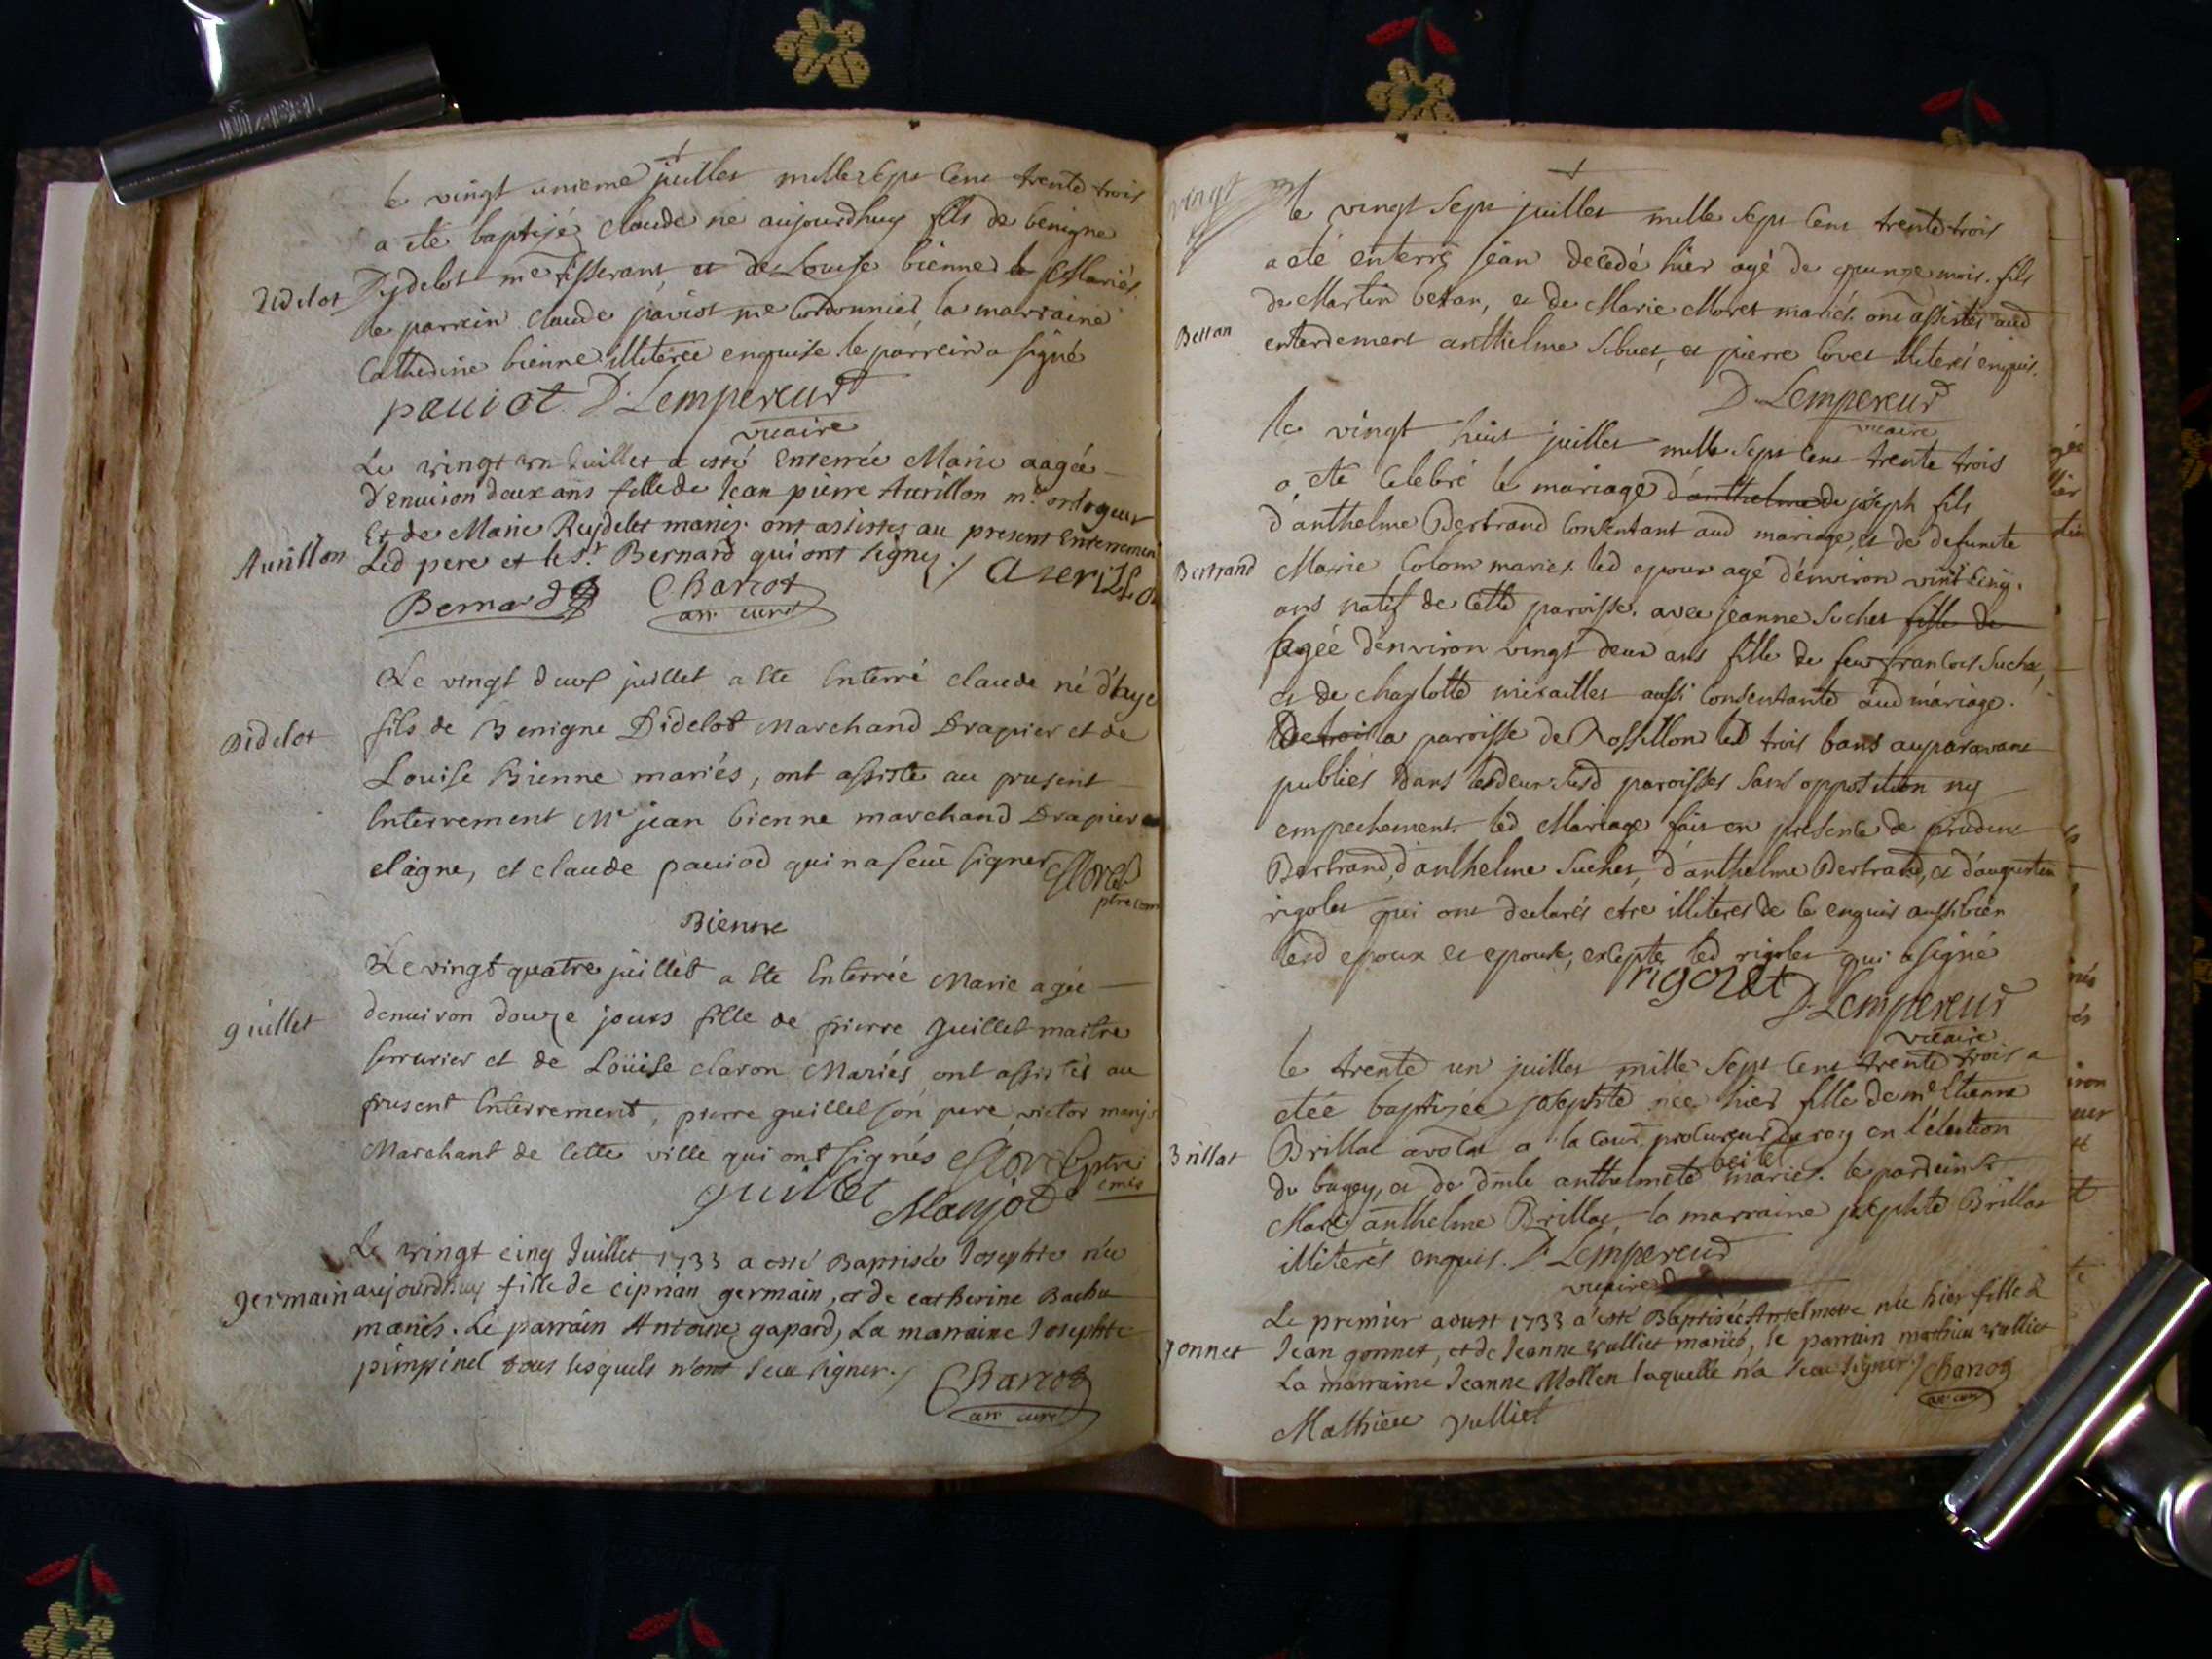 le vingt unieme juillet mille sept cens trente trois
a eté baptisé claude né aujourdhuy fils de benigne
Didelot
Dydelot me tisserant et de Louise bienne mariés
le parrein claude paviot me cordonnier la marraine
Catherine bienne illiterée enquise le parrein a signé
paviot D. Lempereur
vicaire
Le vingt un Juillet a esté Enterrée Marie aagée
D'enuiron deux ans fille de Jean pierre Aurillon me orlogeur
Et de Marie Reydelet mariez. ont assistes au present Enterrement
Aurillon
Led pere et le Sr. Bernard qui ont signez ./.
Bernard Charcot
arr curé
Le vingt deux juillet a ete Enterré claude né d'huye
Didelot
fils de Benigne Didelot Marchand Drapier et de
Louise Bienne mariés, ont assisté au present
Enterrement Mr jean bienne marchand Drapier
et claude pauiod qui n a sceu signer
Bienne
Le vingt quatre juillet a ete Enterrée Marie agée
guillet
denuiron douze jours fille de pierre guillet maitre
serrurier et de Loüise claron Mariés ont assistés au
present Enterrement, pierre guillet son pere, victor
Marchant de cette ville qui ont signés
guillet Manjot
Le vingt cinq Juillet 1733 a esté Baptisée Josephte née
germain
aujourdhuy fille de ciprian germain, et de catherine Bachu
mariés. Le parrain Antoine gapard, La marraine Josephte
pimpinel tous lesquels n'ont sceu signer ./.
Charcot
arr curé
vingt
le vingt sept juillet mille sept cens trente trois
a eté enterré jean decedé hier agé de quinze mois. fils
de Martin betan, et de Marie Moret mariés. ont assistés aud
Bettan
enterrement anthelme Sibuet, et pierre Covet illiterés enquis.
D. Lempereur
vicaire
le vingt huit juillet mille sept cens trente trois
a eté celebré le mariage d'anthelme de joseph fils
d'anthelme Bertrand consentant aud mariage, et de defuncte
Bertrand
Marie Colom mariés led epoux agé d'environ vint cinq
ans natif de cette paroisse. avec jeanne Suchet fille de
agée d'environ vingt deux ans fille de feu francois Suchet,
et de charlotte mirailles aussi consentante aud mariage.
De la paroisse de Rossillon les trois bans auparavant
publiés dans les deux susd paroisses sans opposition ny
empechement. led Mariage fait en presence de prudent
Bertrand, d'anthelme Suchet, d'anthelme Bertrand, et d'augustin
rigolet qui ont declarés etre illiterés de ce enquis aussi bien
lesd epoux et epouse, excepté led rigolet qui a signé
rigolet D. Lempereur
vicaire
le trente un juillet mille sept cens trente trois a
etée baptizée josephte née hier fille de me Etienne
Brillat
Brillat avocat a la cour procureur du roy en l'élection
du bugey, et de dmle anthelmete mariés. le parrein Sr
Marc anthelme Brillat, la marraine josephte Brillat
illiterés enquis. D. Lempereur
vicaire
Le premier aoust 1733 a esté Baptisée Anthelmette née hier fille de
gonnet
Jean gonnet, et de Jeanne vulliet mariés, le parrain mathieu vulliet
La marraine Jeanne Mollen laquelle n'a sceu signer ./. Charcot
arr curé
Mathieu Vulliet